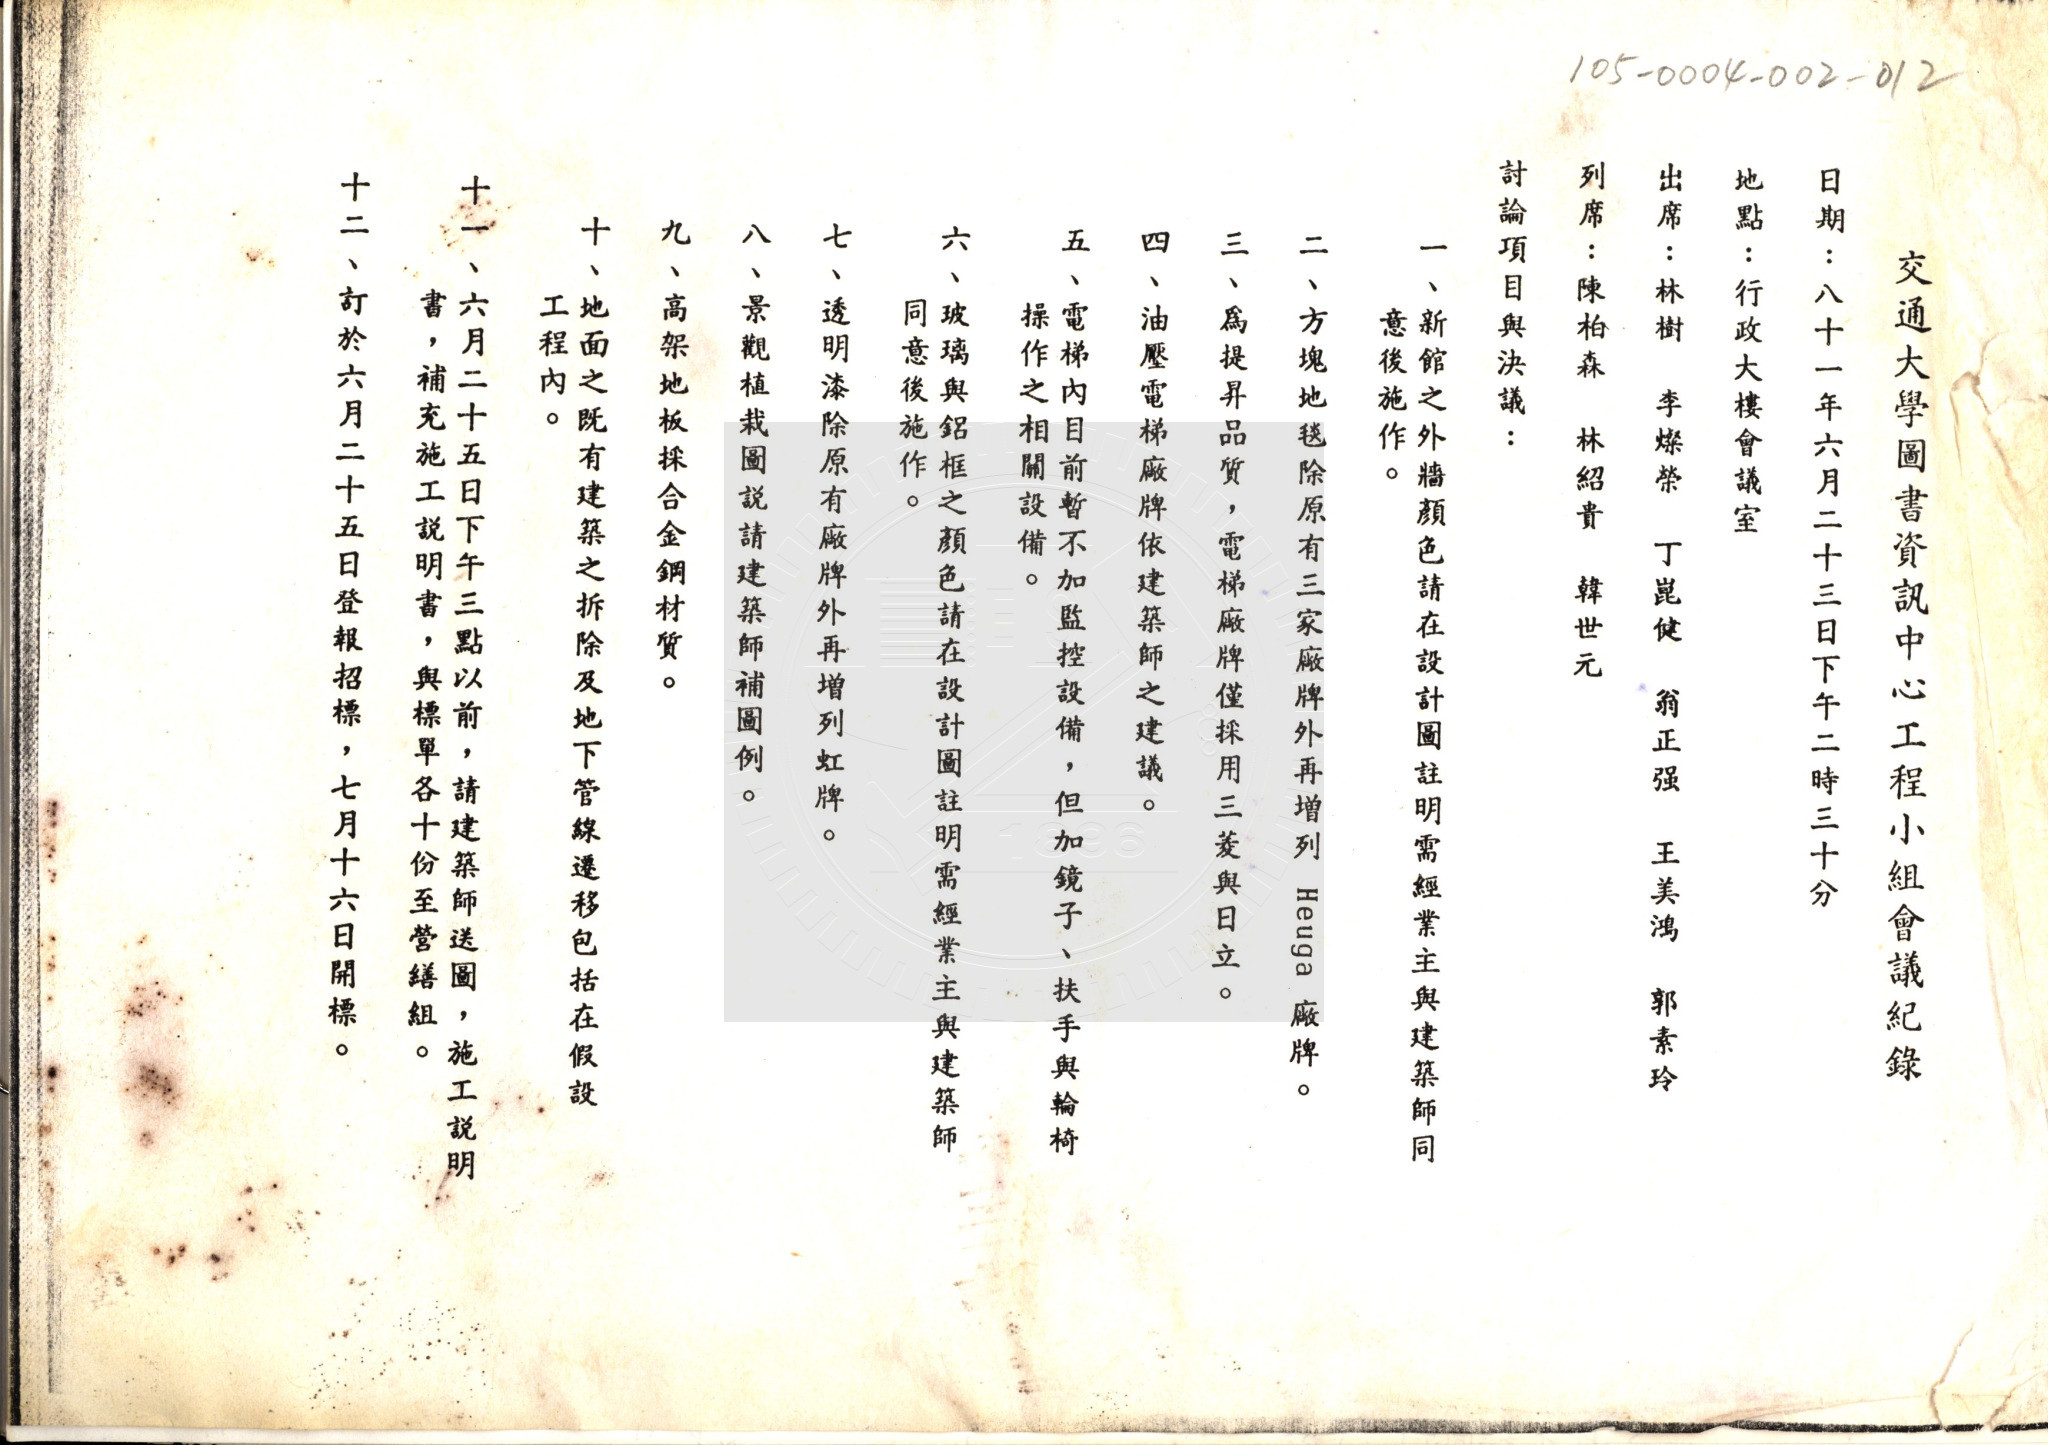 105-0004-002-012
交通大學圖書資訊中心工程小組會議紀錄
日期：八十一年六月二十三日下午二時三十分
地點：行政大樓會議室
出席：林樹 李燦榮 丁崑健 翁正强 王美鴻 郭素玲
列席：陳柏森 林紹貴 韓世元
討論項目與決議：
一、新館之外牆顏色請在設計圖註明需經業主與建築師同
意後施作。
二、方塊地毯除原有三家廠牌外再增列 Heuga 廠牌。
三、為提昇品質，電梯廠牌僅採用三菱與日立。
四、油壓電梯廠牌依建築師之建議。
五、電梯內目前暫不加監控設備，但加鏡子、扶手與輪椅
操作之相關設備。
六、玻璃與鋁框之顏色請在設計圖註明需經業主與建築師
同意後施作。
七、透明漆除原有廠牌外再增列虹牌。
八、景觀植栽圖説請建築師補圖例。
九、高架地板採合金鋼材質。
十、地面之既有建築之拆除及地下管線遷移包括在假設
工程內。
十一、六月二十五日下午三點以前，請建築師送圖，施工説明
書，補充施工説明書，與標單各十份至營繕組。
十二、訂於六月二十五日登報招標，七月十六日開標。
1896